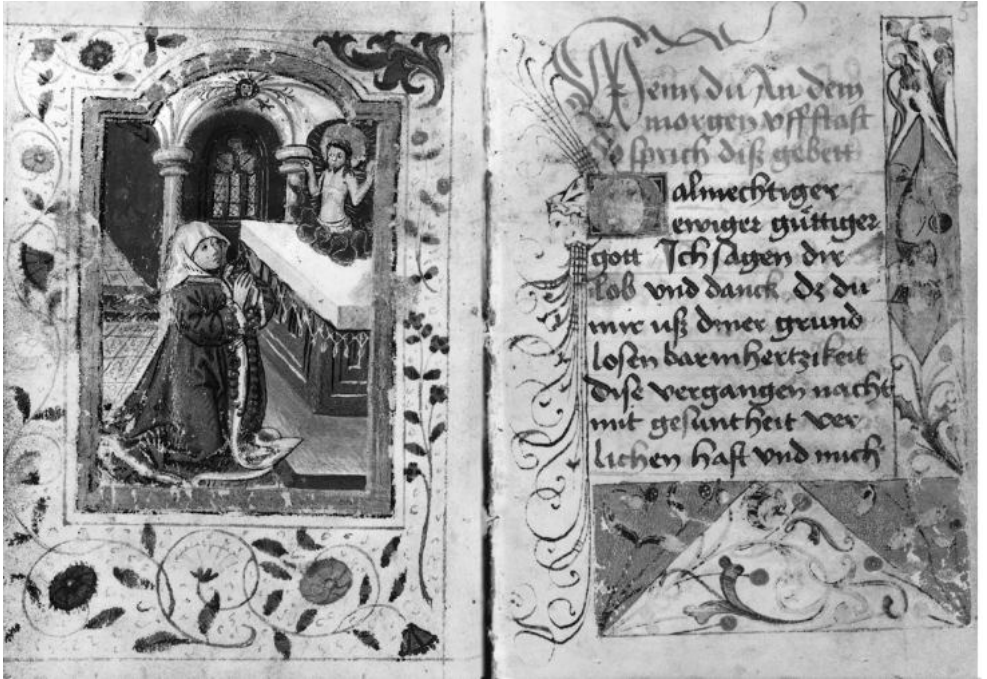 Wenn du An dem
morgen vff stast
So sprich disz gebett
O almechtiger
ewiger güttiger
gott Ich sagen dir
lob vnd danck dz du
mir usz diner grund
losen barmhertzikeit
dise vergangen nacht
mit gesuntheit ver
lichen hast vnd mich